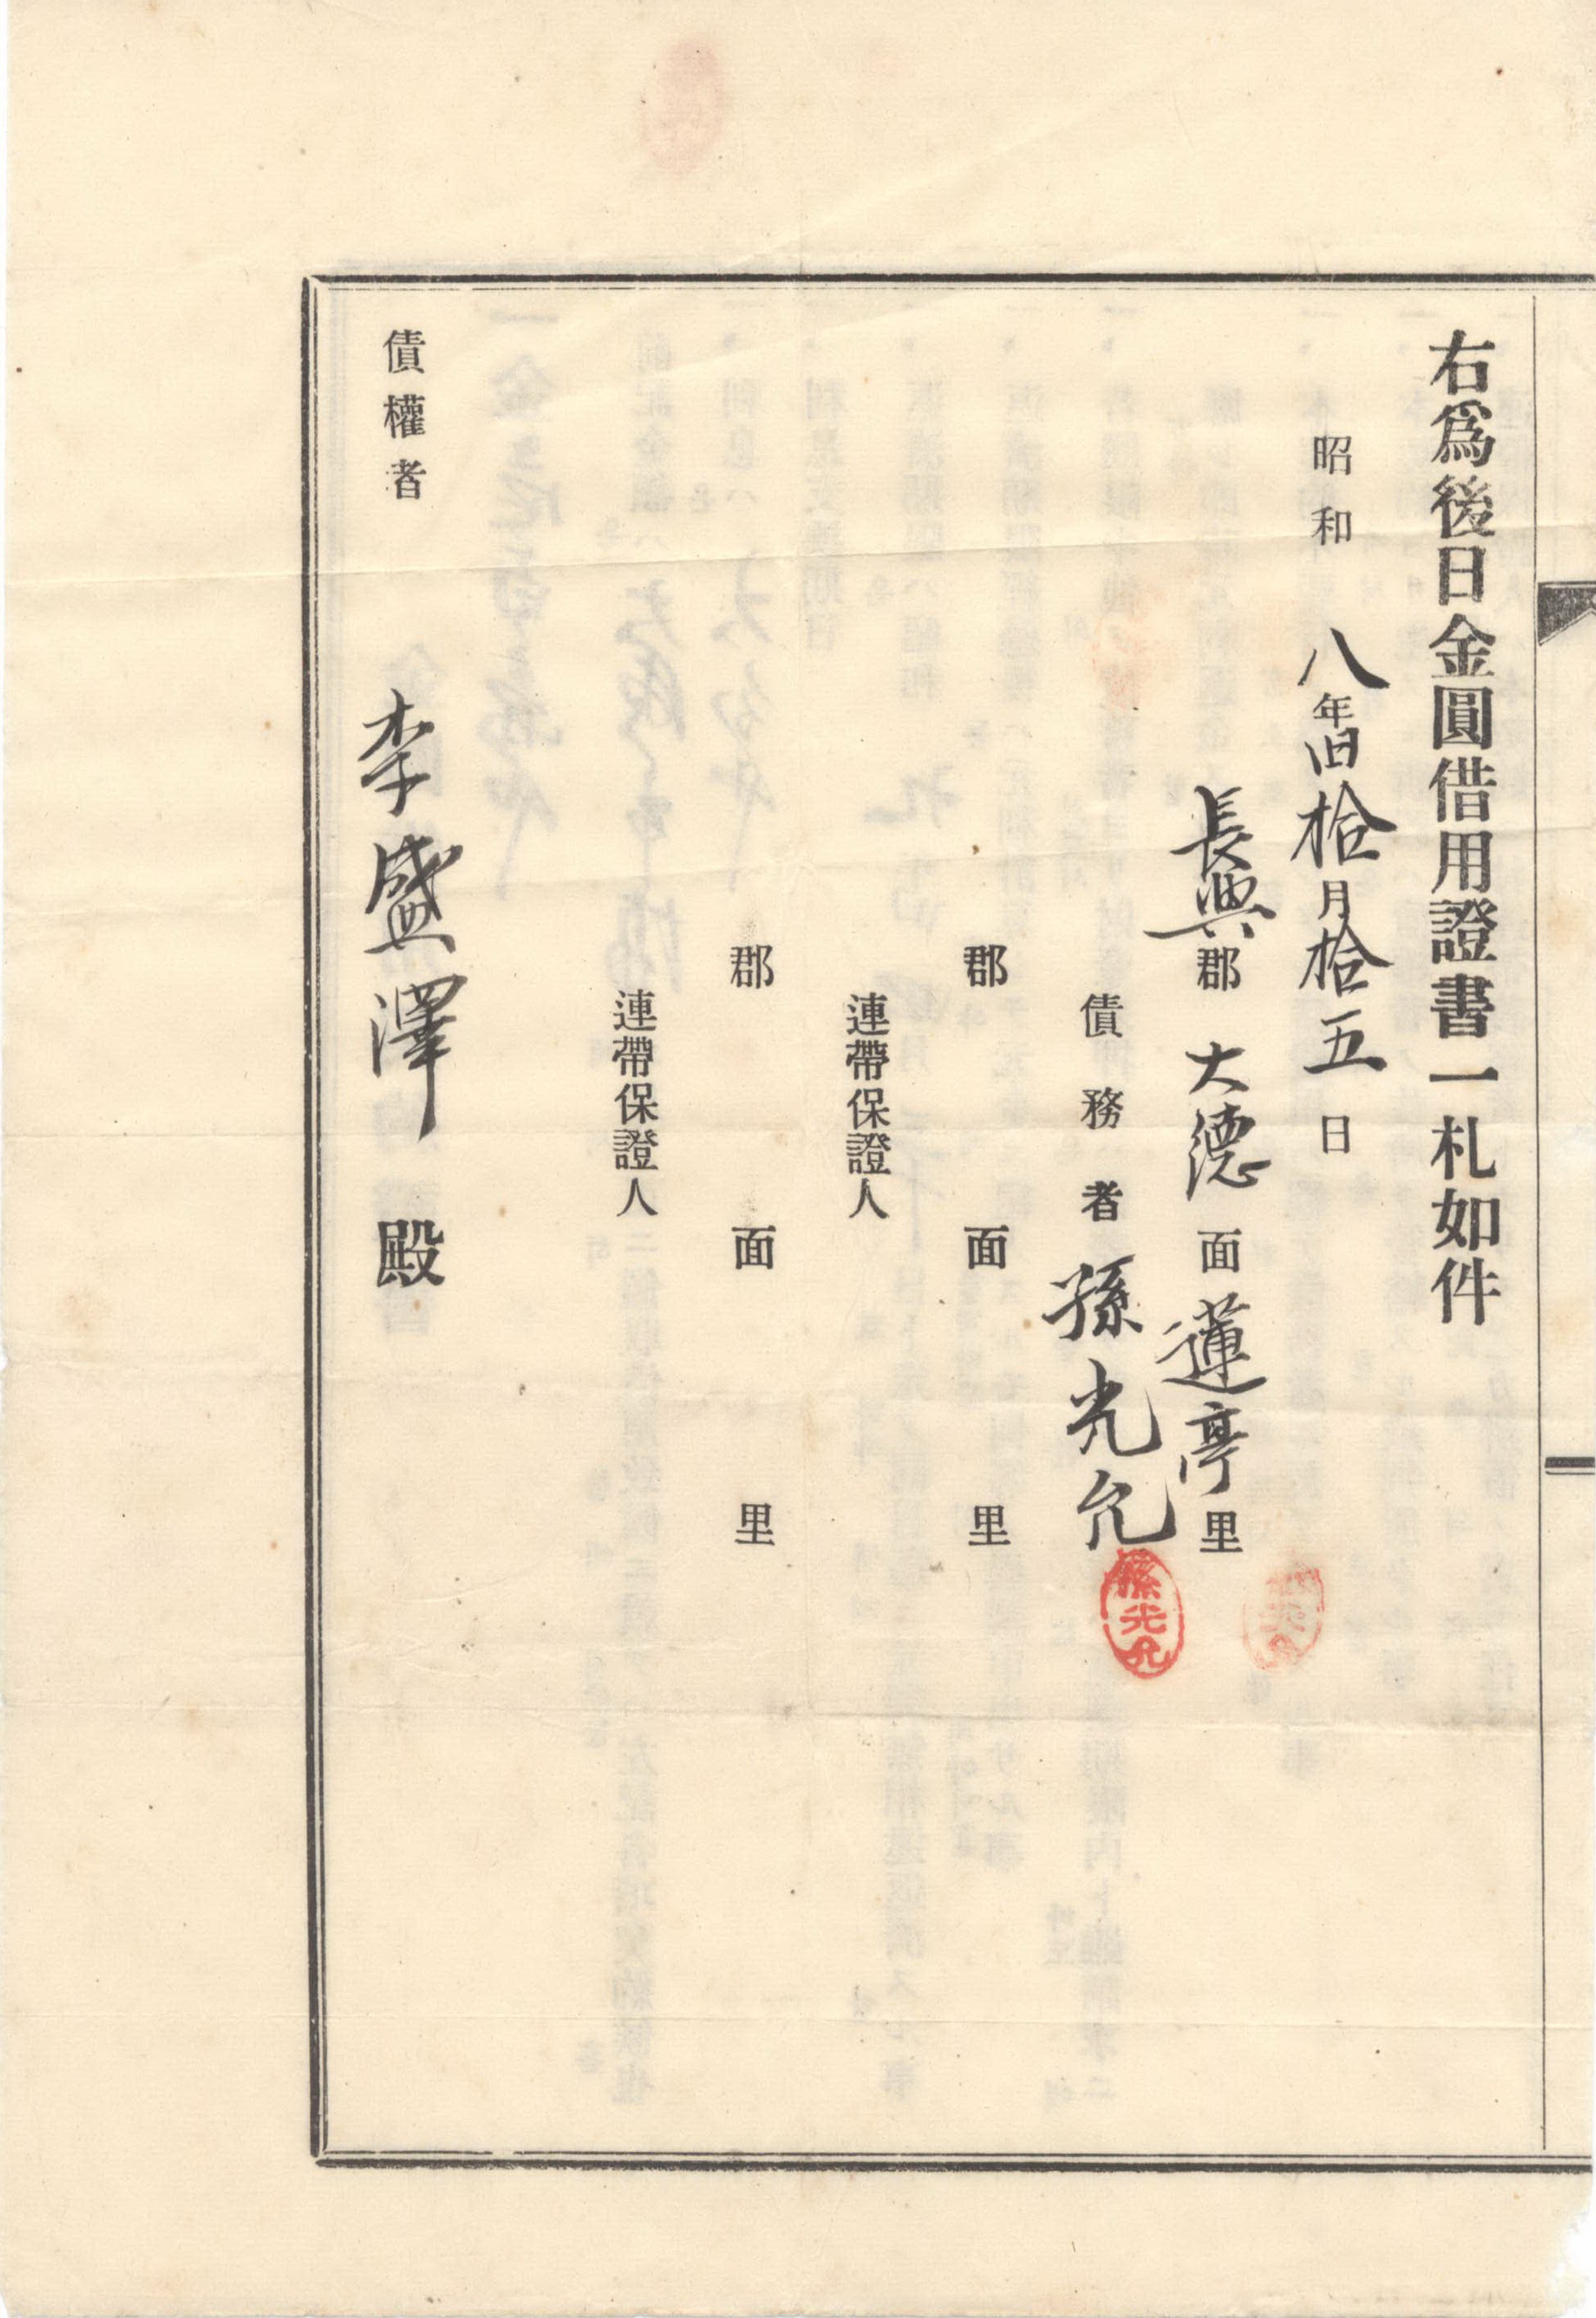 右爲後日金圓借用證書一札如件
昭和 八年旧拾月拾五日
長興郡 大德面 蓮亭里
債務者 孫光允
孫光允
郡 面 里
連帶保證人
郡 面 里
連帶保證人
債權者 李盛澤 殿